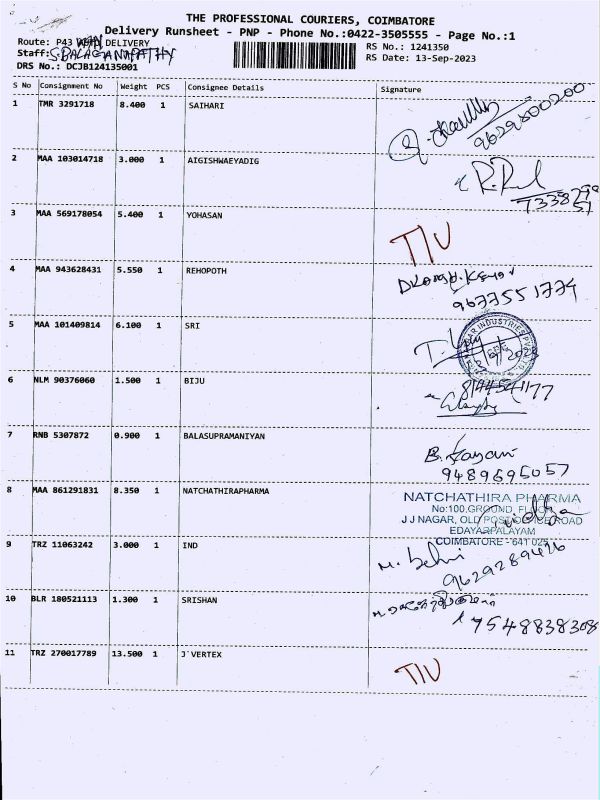 THE PROFESSIONAL COURIERS, COIMBATORE
Delivery Runsheet - PNP - Phone No.:0422-3505555 - Page No.:1
Route: P43 DELIVERY
RS No.: 1241350
Staff: S.BALAGANAPATHY
RS Date: 13-Sep-2023
DRS No.: DCJB124135001
S No Consignment No Weight PCS Consignee Details Signature
1 TMR 3291718 8.400 1 SAIHARI
9629800200
2 MAA 103014718 3.000 1 AIGISHWAEYADIG
3 MAA 569178054 5.400 1 YOHASAN
T/U
4 MAA 943628431 5.550 1 REHOPOTH
9677551774
5 MAA 101409814 6.100 1 SRI
6 NLM 90376060 1.500 1 BIJU
7 RNB 5307872 0.900 1 BALASUPRAMANIYAN
9489695057
8 MAA 861291831 8.350 1 NATCHATHIRAPHARMA
NATCHATHIRA PHARMA
No:100,GROUND, FLOOR
J J NAGAR, OLD POST OFFICE ROAD
EDAYARPALAYAM
COIMBATORE - 641 025
9 TRZ 11063242 3.000 1 IND
9629289426
10 BLR 180521113 1.300 1 SRISHAN
7548838308
11 TRZ 270017789 13.500 1 J`VERTEX
T/U